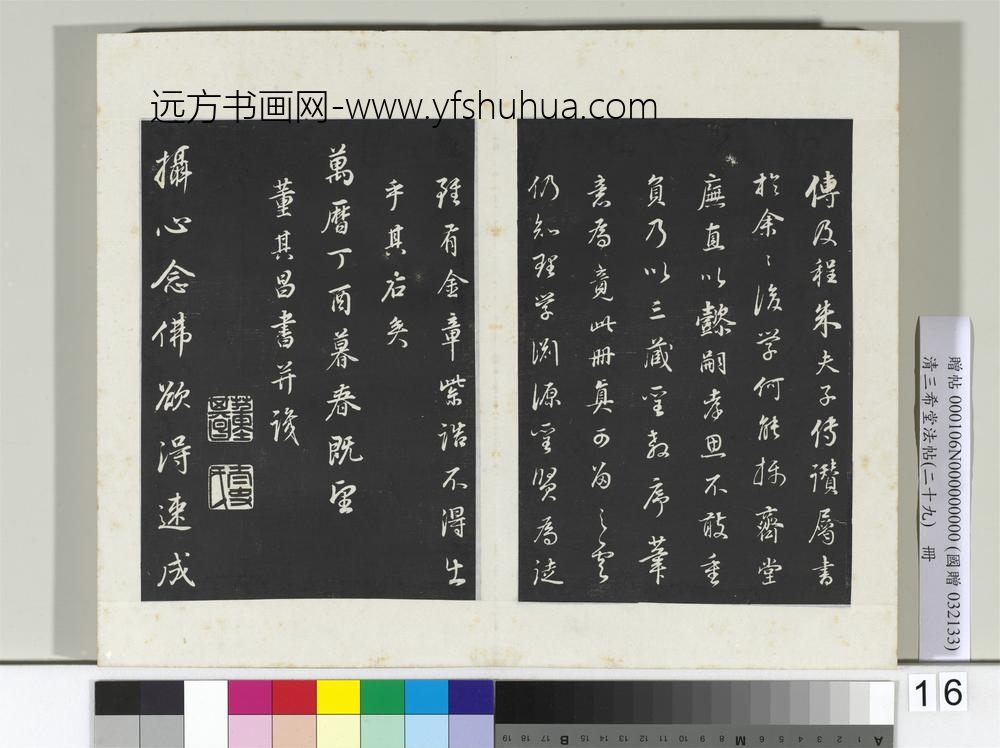 远方书画网-www.yfshuhua.com
傳及程朱夫子傳讚屬書
於余〻後学何能揚齋堂
廡直以懿嗣孝思不敢重
負乃以三藏聖教序筆
意為竟此册真可為
仍知理学渊源聖贤為徒
雖有金章紫誥不得出
乎其右矣
萬曆丁酉暮春既望
董其昌書并識
攝心念佛欲得速成
贈帖 000106N000000000 (國贈 032133)
清三希堂法帖(二十九) 冊
16